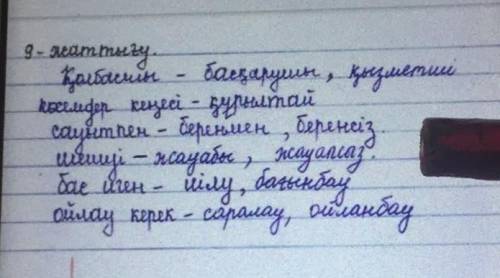 9-жаттығу.
Қолбасшы - басқарушы, қызметші
көсемдер кеңесі - құрылтай
саунтпен - беренмен, беренсіз.
шешуі - жауабы, жауапсыз.
бас иген - иілу, бағынбау
ойлау керек - саралау, ойланбау